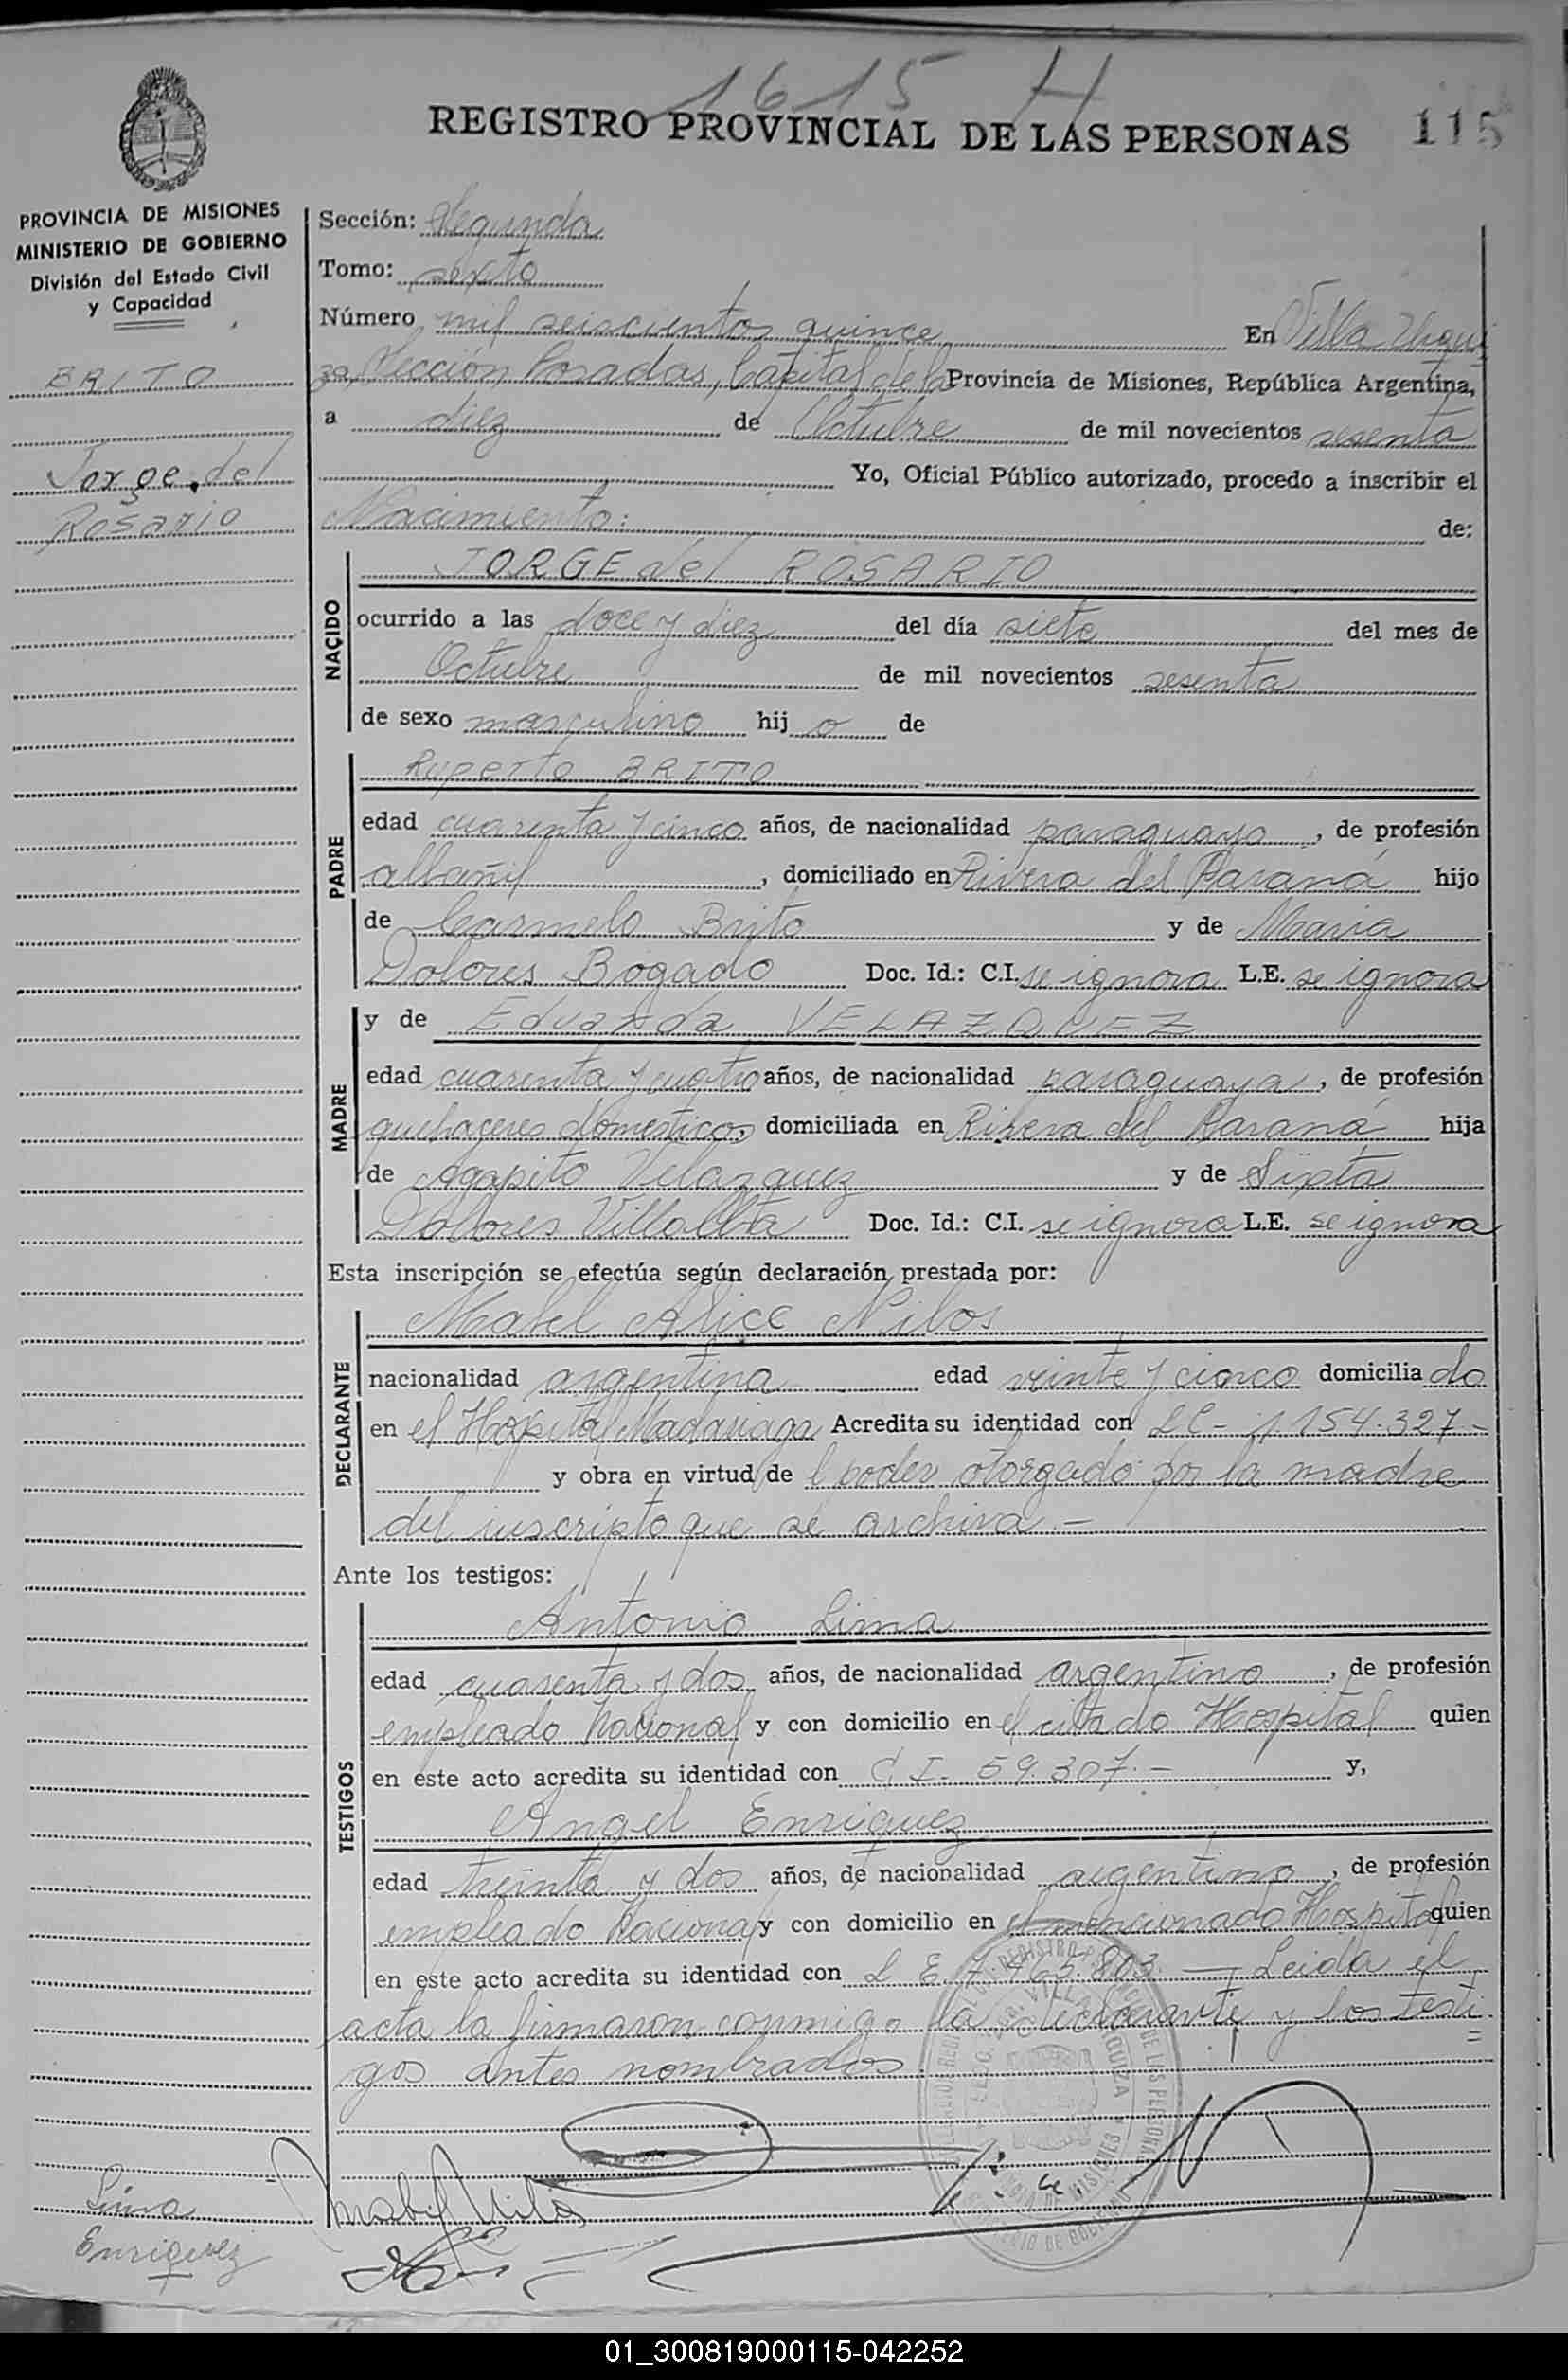 1615 H
REGISTRO PROVINCIAL DE LAS PERSONAS 115
PROVINCIA DE MISIONES
MINISTERIO DE GOBIERNO
División del Estado Civil
y Capacidad
BRITO
Jorge del
Rosario
Sección: Segunda
Tomo: sexto
Número mil seiscientos quince En Villa Urqui
za, Sección Posadas, Capital de la Provincia de Misiones, República Argentina,
a diez de Octubre de mil novecientos sesenta
Yo, Oficial Público autorizado, procedo a inscribir el
Nacimiento: de:
NACIDO
JORGE del ROSARIO
ocurrido a las doce y diez del día siete del mes de
Octubre de mil novecientos sesenta
de sexo masculino hij o de
PADRE
Ruperto BRITO
edad cuarenta y cinco años, de nacionalidad paraguayo, de profesión
albañil, domiciliado en Rivera del Paraná hijo
de Carmelo Brito y de Maria
Dolores Bogado Doc. Id.: C.I. se ignora L.E. se ignora
MADRE
y de Eduarda VELAZQUEZ
edad cuarenta y cuatro años, de nacionalidad paraguaya, de profesión
quehaceres domesticos, domiciliada en Rivera del Paraná hija
de Agapito Velazquez y de Sixta
Dolores Villalba Doc. Id.: C.I. se ignora L.E. se ignora
Esta inscripción se efectúa según declaración prestada por:
DECLARANTE
Mabel Alice Nilos
nacionalidad argentina edad veinte y cinco domicilia do
en el Hospital Madariaga Acredita su identidad con LC - 1.154.327 -
y obra en virtud de l poder otorgado por la madre
del inscripto que se archiva. -
Ante los testigos:
TESTIGOS
Antonio Lima
edad cuarenta y dos años, de nacionalidad argentino, de profesión
empleado Nacional y con domicilio en el citado Hospital quien
en este acto acredita su identidad con C.I. 59.307. - y,
Angel Enriquez
edad treinta y dos años, de nacionalidad argentino, de profesión
empleado Nacional y con domicilio en el mencionado Hospital quien
en este acto acredita su identidad con L E 7.465.803. — Leida el
acta la firmaron conmigo la declarante y los testi=
gos antes nombrados.
Lima
Enriquez
01_300819000115-042252